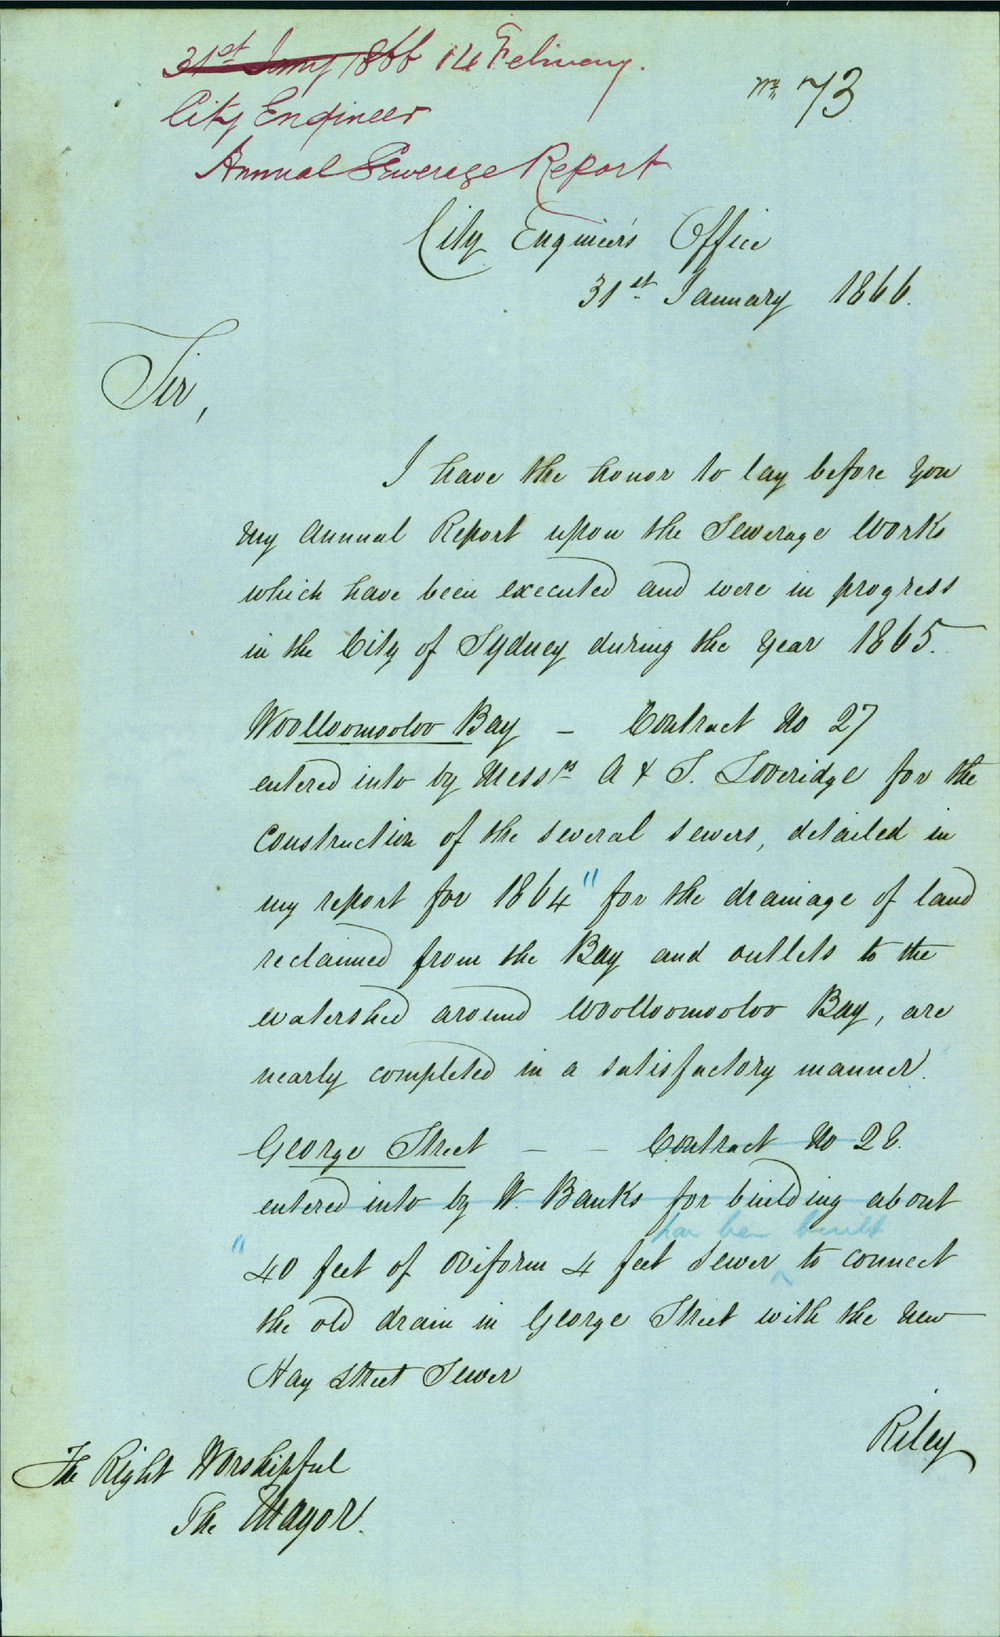 31st Jany 1866 14 February.
No. 73
City Engineer
Annual Sewerage Report
City Engineer's Office
31st January 1866.
Sir,
I have the honor to lay before you
my Annual Report upon the Sewerage Works
which have been executed and were in progress
in the City of Sydney during the year 1865.
Woolloomooloo Bay – Contract No 27
entered into by Messrs A & S. Loveridge for the
construction of the several sewers, detailed in
my report for 1864 " for the drainage of land
reclaimed from the Bay and outlets to the
watershed around Woolloomooloo Bay, are
nearly completed in a satisfactory manner.
George Street – – Contract No 28.
entered into by W. Banks for building about
has been built
" 40 feet of Oviform 4 feet Sewer ^ to connect
the old drain in George Street with the new
Hay Street Sewer
Riley
The Right Worshipful
The Mayor.